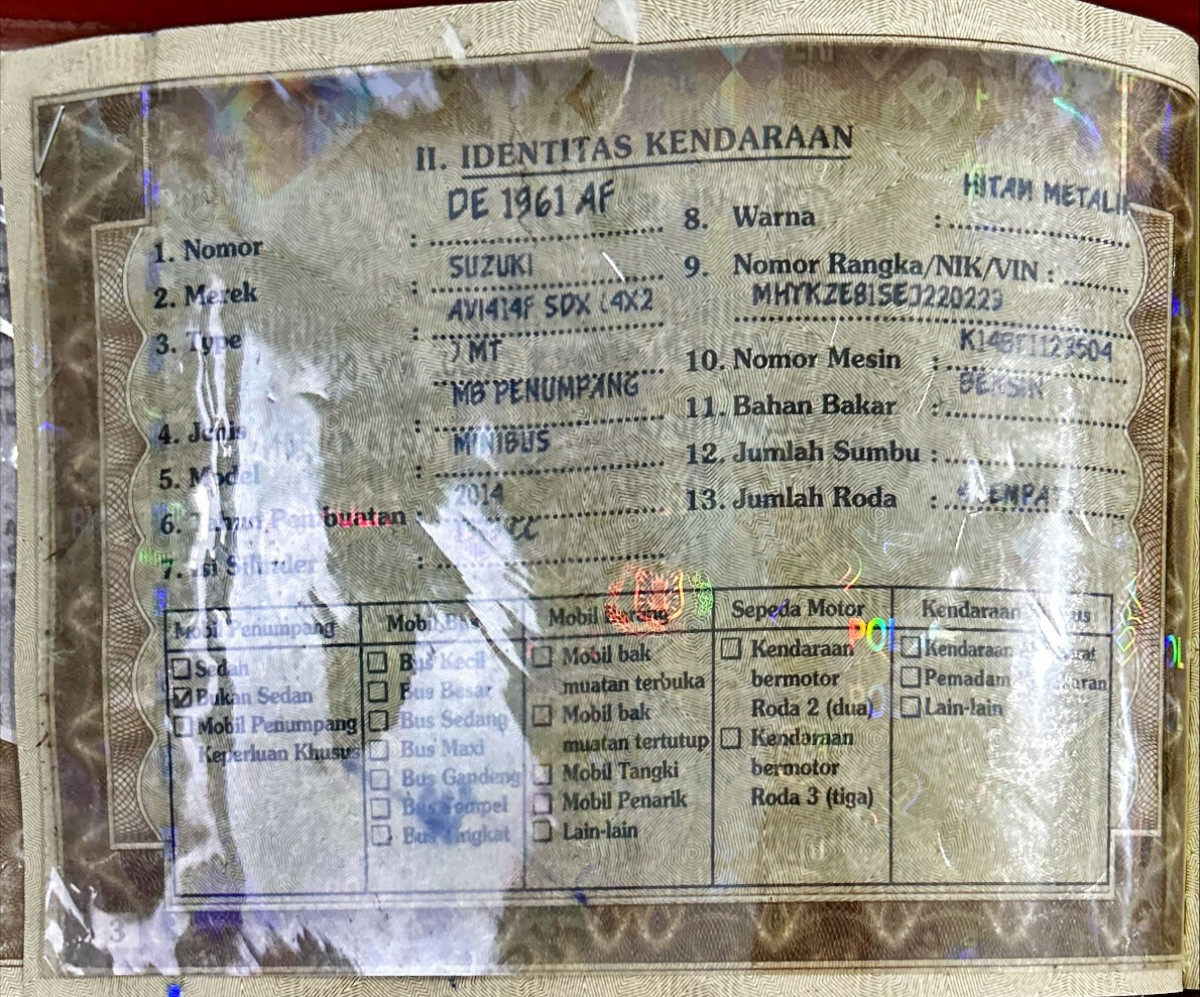 II. IDENTITAS KENDARAAN
1. Nomor : DE 1961 AF
2. Merek : SUZUKI
3. Type : AV1414F SDX (4X2
) MT
4. Jenis : MB PENUMPANG
5. Model : MINIBUS
6. Tahun Pembuatan : 2014
7. Isi Silinder : CC
8. Warna : HITAM METALIK
9. Nomor Rangka/NIK/VIN :
MHYKZE81SEJ220223
10. Nomor Mesin :
11. Bahan Bakar : BENSIN
12. Jumlah Sumbu :
13. Jumlah Roda : EMPAT
Mobil Penumpang
Sedan
Bukan Sedan
Mobil Penumpang
Keperluan Khusus
Mobil Bus
Bus Kecil
Bus Besar
Bus Sedang
Bus Maxi
Bus Gandeng
Bus Tempel
Bus Tingkat
Mobil Barang
Mobil bak
muatan terbuka
Mobil bak
muatan tertutup
Mobil Tangki
Mobil Penarik
Lain-lain
Sepeda Motor
Kendaraan
bermotor
Roda 2 (dua)
Kendaraan
bermotor
Roda 3 (tiga)
Kendaraan
Kendaraan
Pemadam
Lain-lain
3